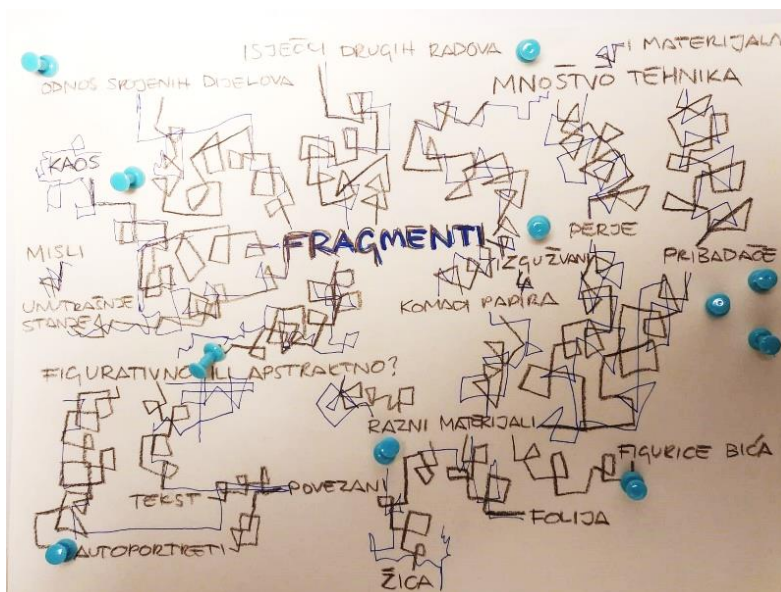 ISJEČCI DRUGIH RADOVA
I MATERIJALA
ODNOS SPOJENIH DIJELOVA
MNOŠTVO TEHNIKA
KAOS
FRAGMENTI
PERJE
MISLI
IZGUŽVANI
PRIBADAČE
UNUTRAŠNJE
STANJE
KOMADI PAPIRA
FIGURATIVNO ILI APSTRAKTNO?
RAZNI MATERIJALI
FIGURICE BIĆA
TEKST
POVEZANI
FOLIJA
AUTOPORTRETI
ŽICA